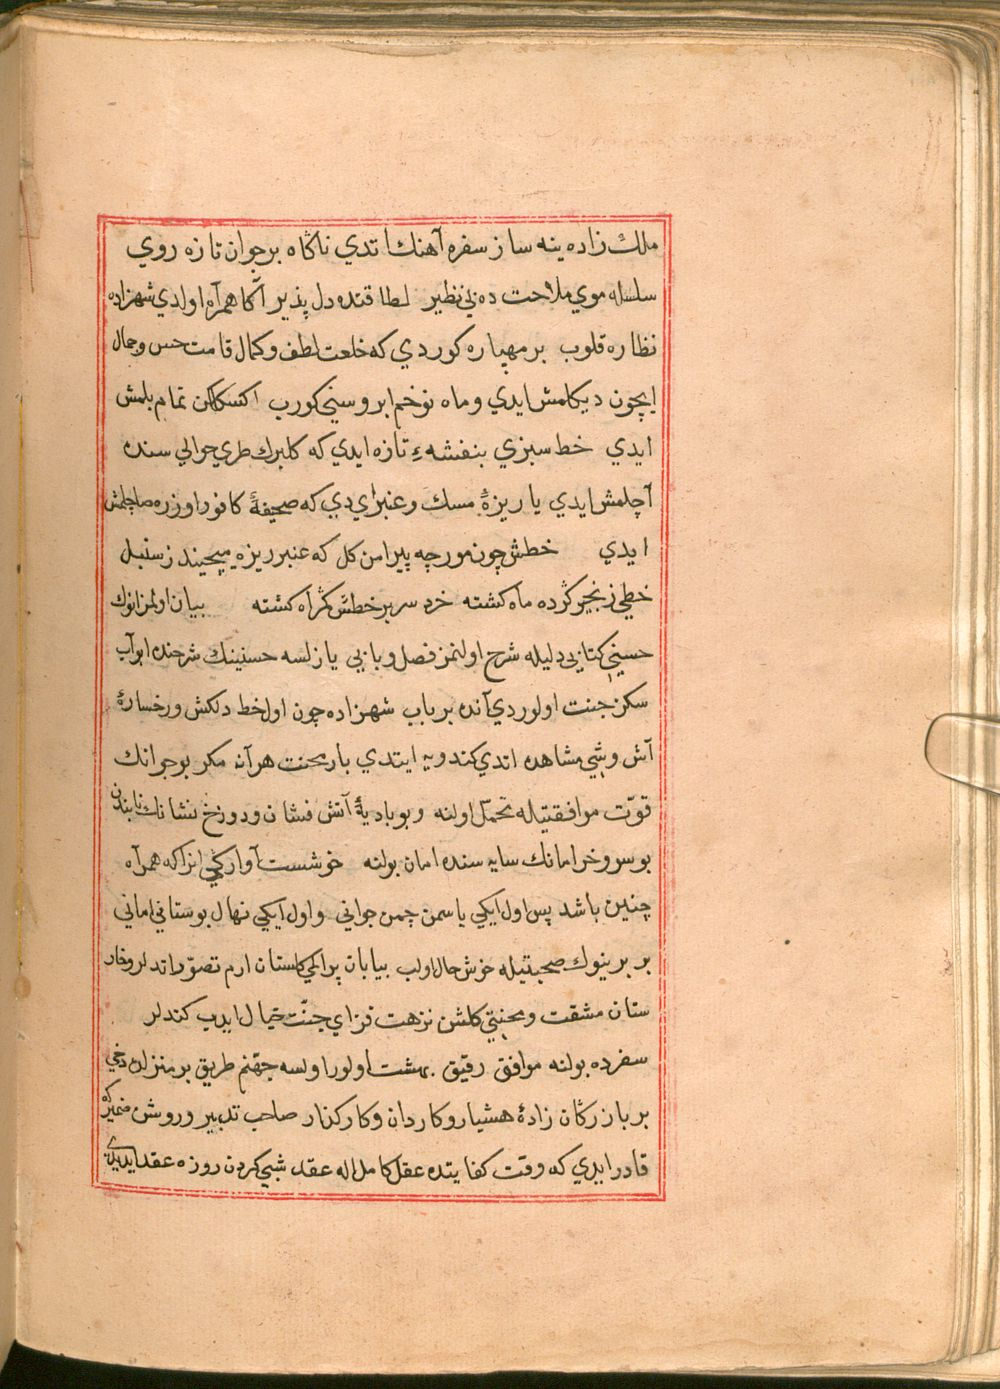 ملك زاده ينه ساز سفره آهنك اتدي ناكاه بر جوان تازه روي
سلسله موي ملاحت ده بي نظير لطافتده دل پذير آكا همراه اولدي شهزاده
نظاره قلوب بر مهپاره كوردي كه خلعت لطف وكمال قامت حسن وجمال
ايچون ديكلمش ايدي وماه نو خم ابروسني كورب اكسكلكن تمام بلمش
ايدي خط سبزي بنفشهء تازه ايدي كه كلبرك طري حوالي سنده
آچلمش ايدي يا ريزهٔ مسك وعنبر ايدي كه صحيفهٔ كافور اوزره صاچلمش
ايدي خطش چون مورچه پيرامن كل كه عنبر ريزه ميچيند ز سنبل
خطي زنجير كرده ماه كشته خرد سر بر خطش كمراه كشته بيان اولمز انوك
حسني كتابي دليله شرح اولنمز فصل وبابي يازلسه حسنينك شرحنده ابواب
سكز جنت اولوردي آنده بر باب شهزاده چون اول خط دلكش ورخسارهٔ
آتش وشي مشاهده اتدي كندويه ايتدي بار محنت هرآنه مكر بو جوانك
قوّت موافقتيله تحمّل اولنه وبو باديهٔ آتش فشان ودوزخ نشانك تابندن
بو سرو خرامانك سايه سنده امان بولنه خوشست آواركي انرا كه همراه
چنين باشد پس اول ايكي ياسمن چمن جواني واول ايكي نهال بوستاني اماني
بر برينوك صحبتيله خوش حال اولب بيابان پر المي كلستان ارم تصوّر اتدلر وخار
ستان مشقت ومحنتي كلشن نزهت فزاي جنّت خيال ايدب كندلر
سفرده بولنه موافق رفيق بهشت اولور اولسه جهّنم طريق بر منزلده دخي
بر بازركان زادهٔ هشيار وكاردان وكاركذار صاحب تدبير وروشن ضمير كه
قادر ايدي كه وقت كفايتده عقل كامل اله عقد شبي كردن روزه عقد ايديدي